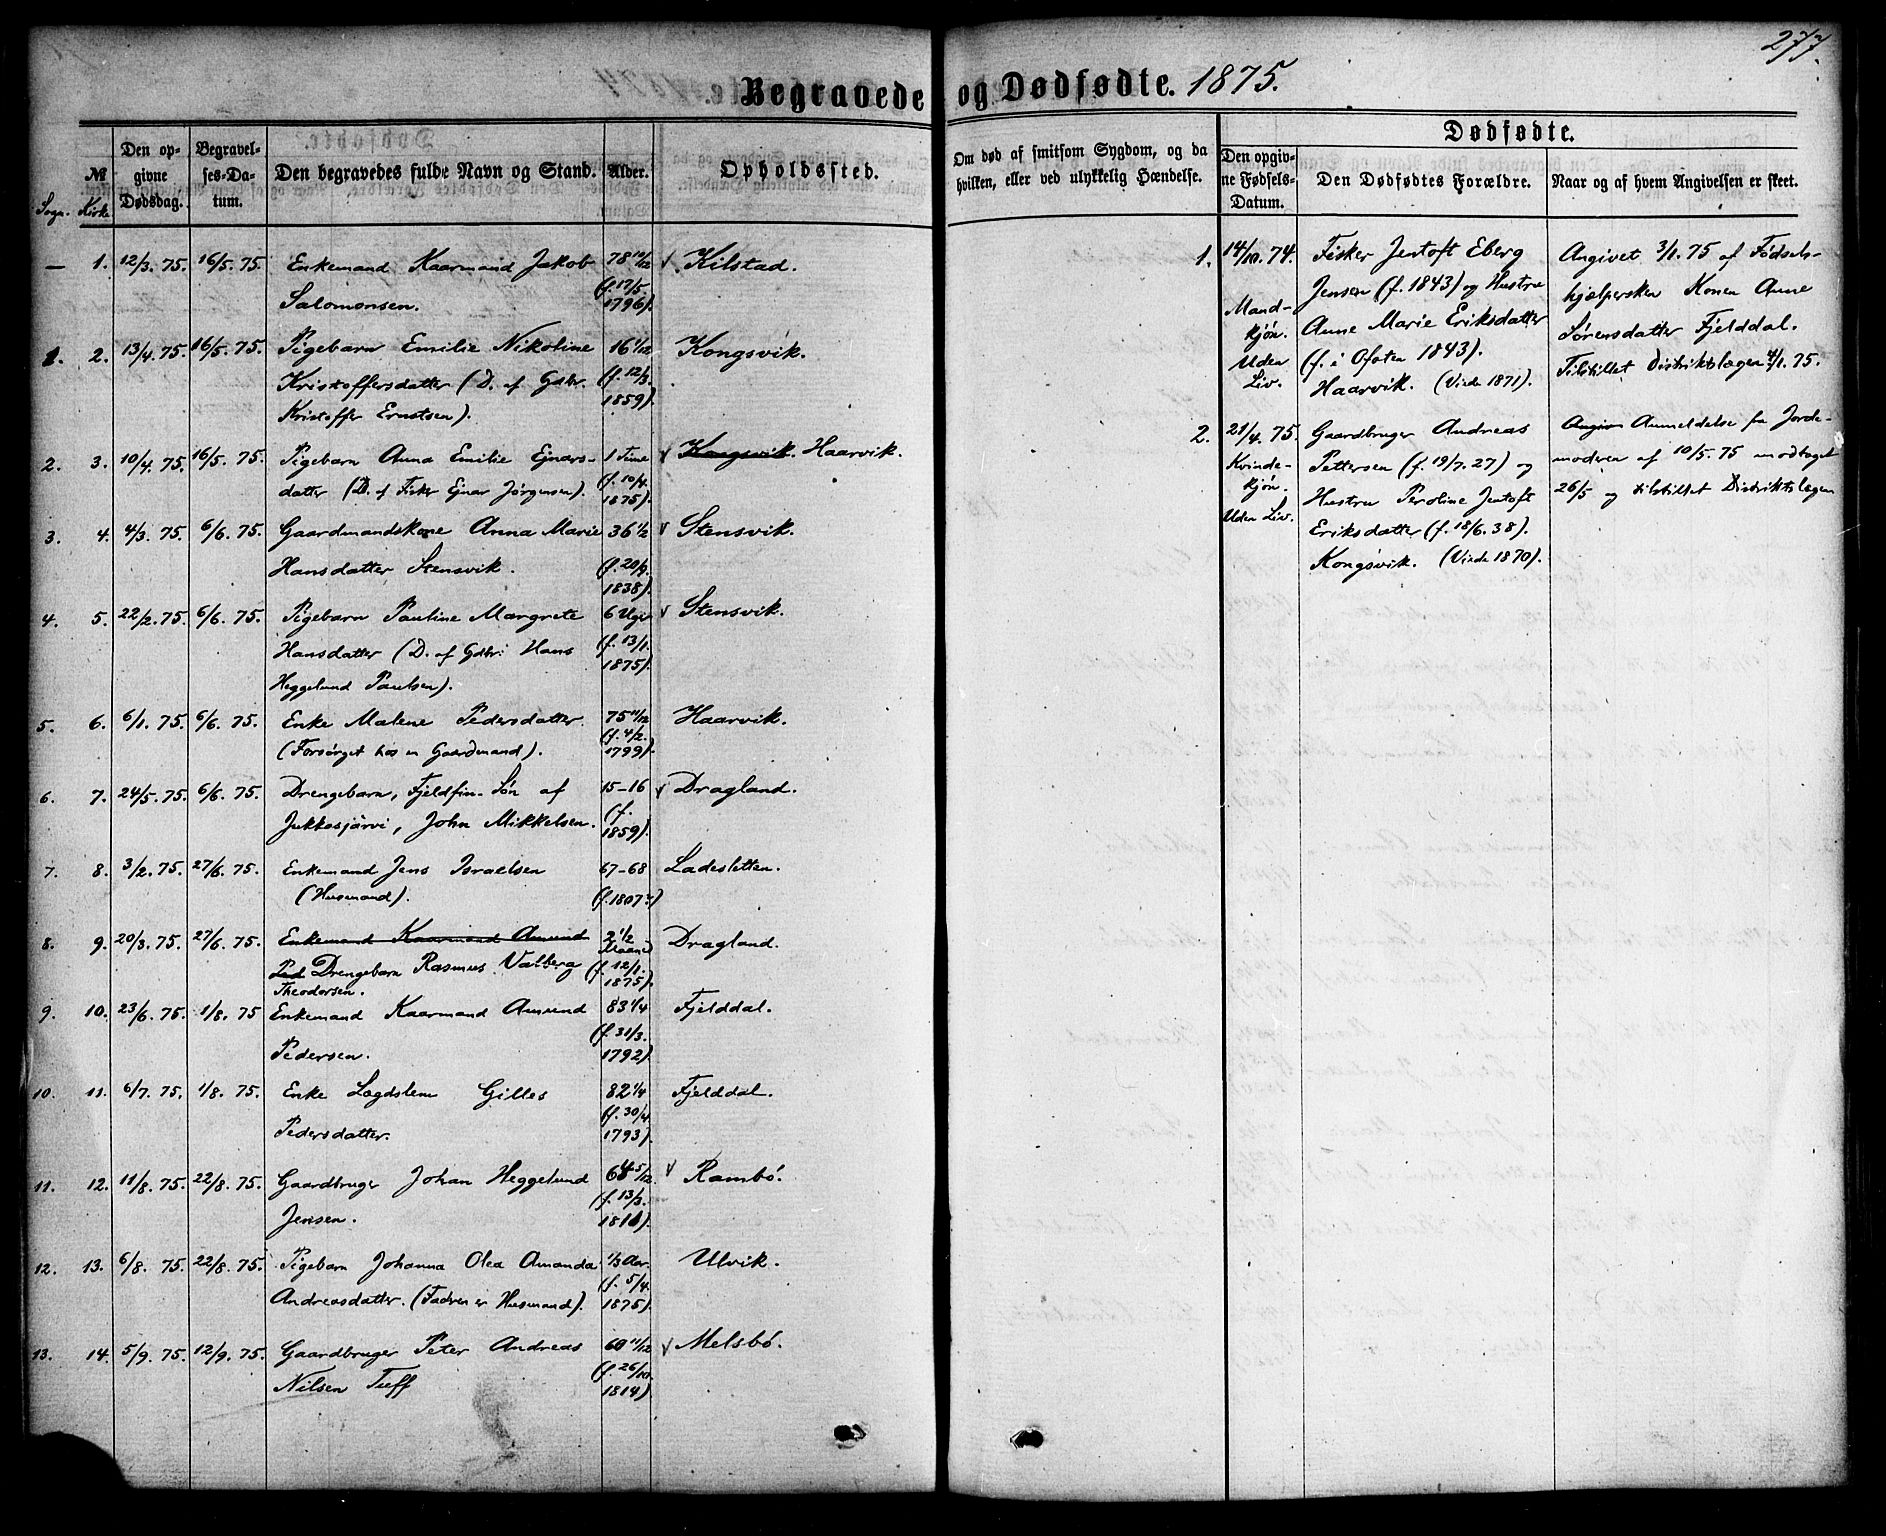 277.
Begravede og Dødfødte. 1875.
Sogn. № Kirke
Den opgivne Dødsdag.
Begravelses-Datum.
Den begravedes fulde Navn og Stand.
Alder.
Opholdssted.
Om død af smitsom Sygdom, og da hvilken, eller ved ulykkelig Hændelse.
Dødfødte.
Den opgivne Fødsels-Datum.
Den Dødfødtes Forældre.
Naar og af hvem Angivelsen er skeet.
— 1. 12/3. 75. 16/5. 75. Enkemand Kaarmand Jakob 78 10/12 Kilstad.
Salomonsen. (f. 17/5. 1796).
1. 2. 13/4. 75. 16/5. 75. Pigebarn Emilie Nikoline 16 1/12 Kongsvik.
Kristoffersdatter (D. af Gdbr. (f. 12/3.
Kristoffer Ernstsen). 1859).
2. 3. 10/4. 75. 16/5. 75. Pigebarn Anna Emilie Ejnars- 1 Time Kongsvik. Haarvik.
datter (D. af Fisker Ejnar Jørgensen). (f. 10/4. 1875).
3. 4. 4/3. 75. 6/6. 75. Gaardmandskone Anna Marie 36 1/2 Stensvik.
Hansdatter Stensvik. (f. 20/9. 1838).
4. 5. 22/2. 75. 6/6. 75. Pigebarn Pauline Margrete 6 Uger Stensvik.
Hansdatter (D. af Gdbr: Hans (f. 13/1.
Heggelund Paulsen). 1875).
5. 6. 6/1. 75. 6/6. 75. Enke Malene Pedersdatter. 75 11/12 Haarvik.
(Forsørget hos en Gaardmand). (f. 4/2. 1799).
6. 7. 24/5. 75. 6/6. 75. Drengebarn, Fjeldfin- Søn af 15-16 Dragland.
Jukkasjärvi, John Mikkelsen. (f. 1859).
7. 8. 3/2. 75. 27/6. 75. Enkemand Jens Israelsen 67-68 Ladesletten.
(Husmand). (f. 1807?)
8. 9. 20/3. 75. 27/6. 75. Enkemand Kaarmand Amund 2 1/2 Maaned Dragland.
Ped Drengebarn Rasmus Valberg (f. 12/1.
Theodorsen. 1875).
9. 10. 23/6. 75. 1/8. 75 Enkemand Kaarmand Amund 83 1/4 Fjelddal.
Pedersen. (f. 31/3. 1792).
10. 11. 6/7. 75. 1/8. 75. Enke Lægdslem Gilles 82 1/4 Fjelddal.
Pedersdatter. (f. 30/4. 1793).
11. 12. 11/8. 75. 22/8. 75. Gaardbruger Johan Heggelund 64 5/12 Rambø.
Jensen. (f. 13/3. 1811).
12. 13. 6/8. 75. 22/8. 75. Pigebarn Johanna Olea Amanda 1/3 Aar. Ulvik.
Andreasdatter. (Fadren er Husmand). (f. 5/4. 1875).
13. 14. 5/9. 75. 12/9. 75. Gaardbruger Peter Andreas 60 11/12 Melsbø.
Nilsen Tuff (f. 26/10. 1814).
1. 14/10. 74. Fisker Jentoft Eberg
Mand-
kjøn.
Uden
Liv.
Jensen (f. 1843) og Hustru
Anne Marie Eriksdatter
(f. i Ofoten 1843).
Haarvik. (Viede 1871).
Angivet 3/1. 75 af Fødsels-
hjælpersken Konen Anne
Sørensdatter Fjelddal.
Tilstillet Distriktslægen 4/1. 75.
2. 21/4. 75. Gaardbruger Andreas
Kvinde-
kjøn.
Uden Liv.
Pettersen (f. 19/7. 27) og
Hustru Peroline Jentoft
Eriksdatter (f. 18/6. 38).
Kongsvik. (Viede 1870).
Angiv Anmeldelse fra Jorde-
moderen af 10/5. 75 modtaget
26/5 og tilstillet Distriktslægen